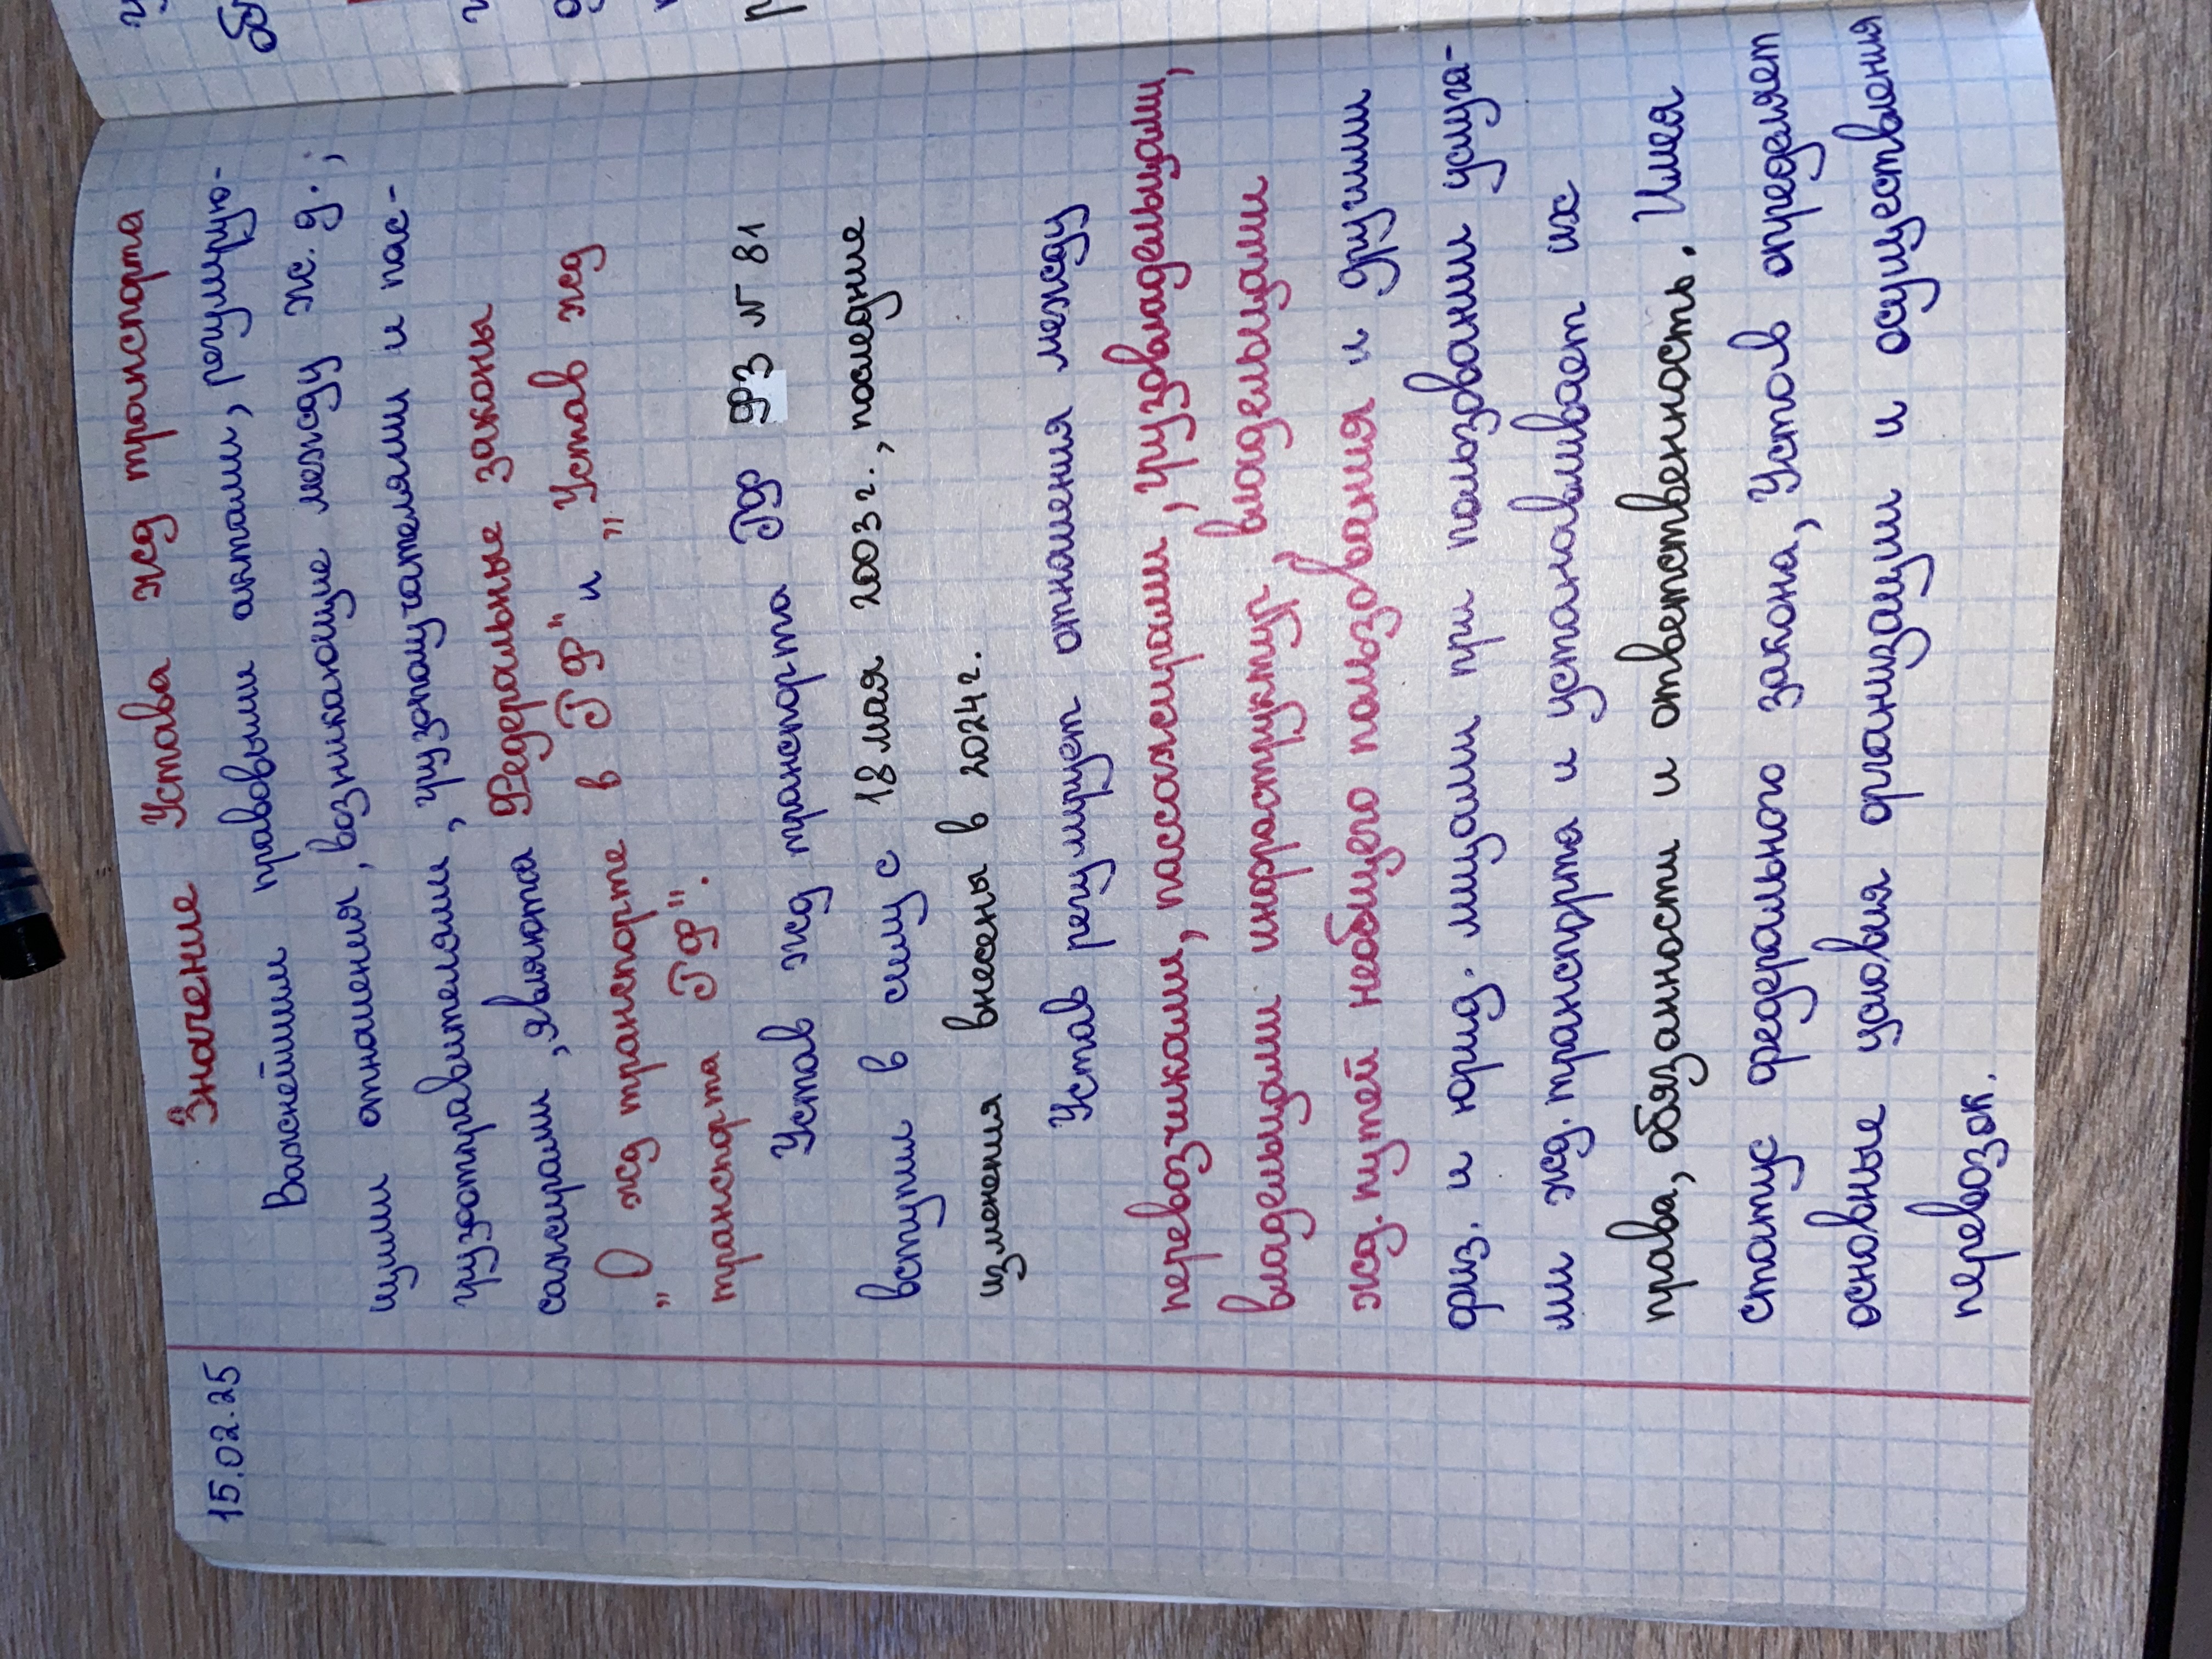 15.02.25
Значение Устава жд транспорта
Важнейшим правовыми актами, регулирую-
щими отношения, возникающие между ж.д.,
грузоотправителями, грузополучателями и пас-
сажирами, являются Федеральные законы
„О жд транспорте в РФ" и „Устав жд
транспорта РФ".
Устав жд транспорта РФ ФЗ №81
вступил в силу с 18 мая 2003г., последние
изменения внесены в 2024г.
Устав регулирует отношения между
перевозчиками, пассажирами, грузовладельцами,
владельцами инфраструктур, владельцами
жд. путей необщего пользования и другими
физ. и юрид. лицами при пользовании услуга-
ми жд. транспорта и устанавливает их
права, обязанности и ответственность. Имея
статус федерального закона, Устав определяет
основные условия организации и осуществления
перевозок.